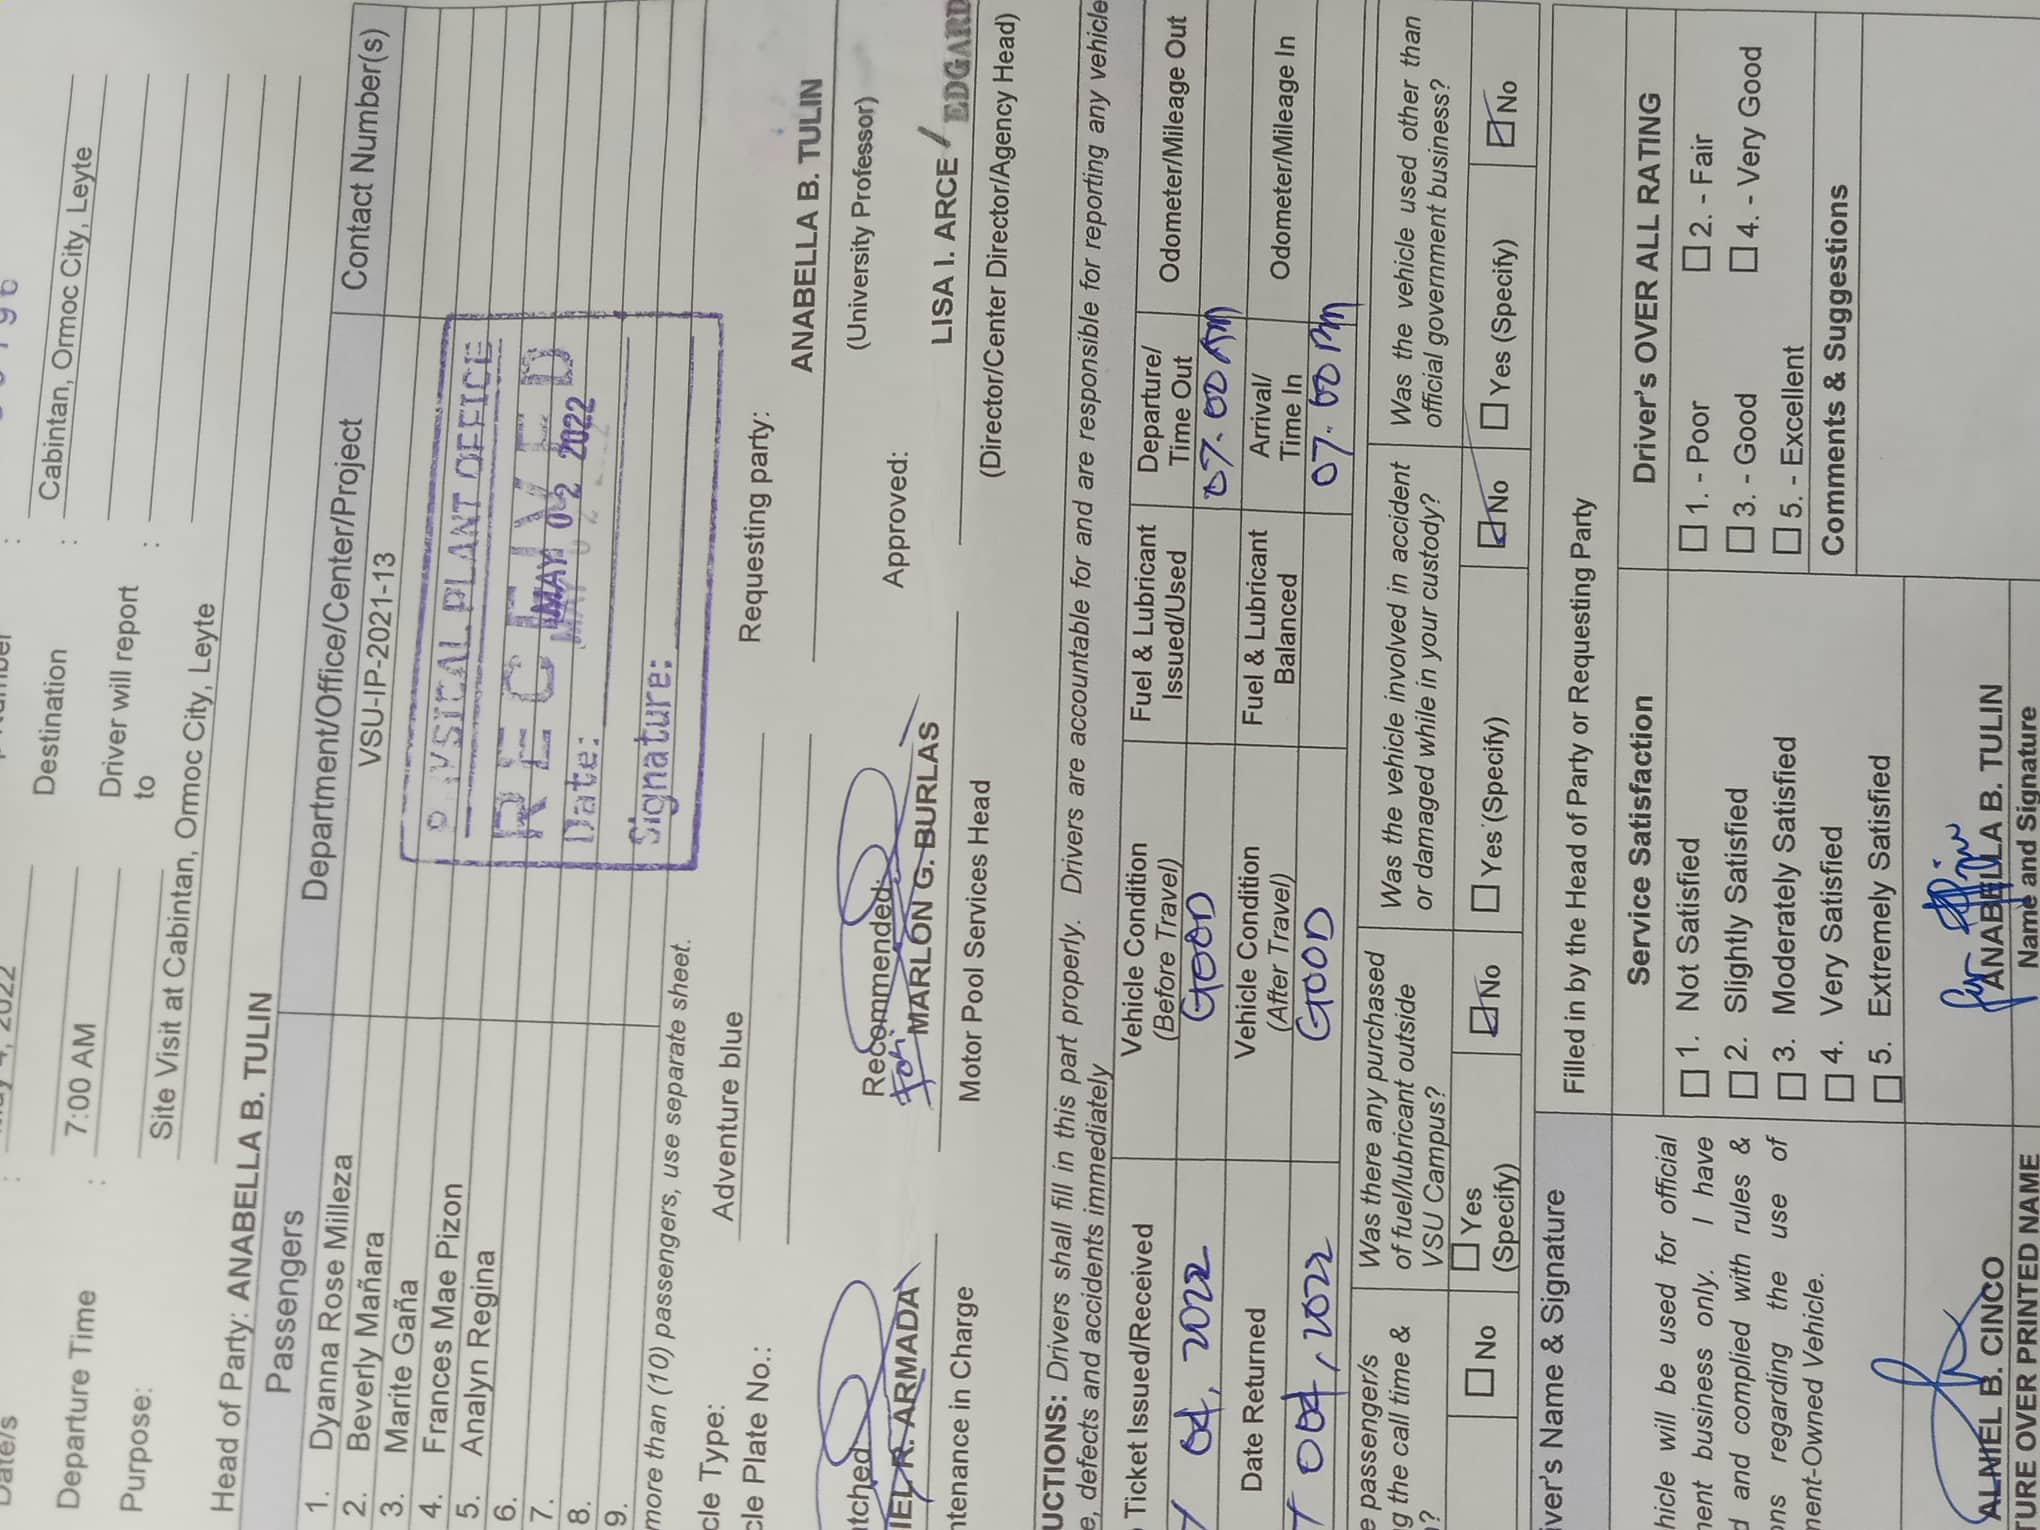 Date/s : 4, 2022
Departure Time : 7:00 AM
Destination : Cabintan, Ormoc City, Leyte
Purpose: Site Visit at Cabintan, Ormoc City, Leyte
Driver will report to :
Head of Party: ANABELLA B. TULIN
Passengers Department/Office/Center/Project Contact Number(s)
1. Dyanna Rose Milleza VSU-IP-2021-13
2. Beverly Mañara
3. Marite Gaña
4. Frances Mae Pizon
5. Analyn Regina
6.
7.
8.
9.
PLANT OFFICE
RECEIVED
Date: MAY 02 2022
Signature:
more than (10) passengers, use separate sheet.
cle Type: Adventure blue
cle Plate No.:
Requesting party:
ANABELLA B. TULIN
(University Professor)
atched Recommended: Approved:
IEL R. ARMADA For: MARLON G. BURLAS LISA I. ARCE / EDGARD
ntenance in Charge Motor Pool Services Head (Director/Center Director/Agency Head)
UCTIONS: Drivers shall fill in this part properly. Drivers are accountable for and are responsible for reporting any vehicle
e, defects and accidents immediately
Ticket Issued/Received Vehicle Condition (Before Travel) Fuel & Lubricant Issued/Used Departure/ Time Out Odometer/Mileage Out
Y 04, 2022 GOOD 07:00 AM
Date Returned Vehicle Condition (After Travel) Fuel & Lubricant Balanced Arrival/ Time In Odometer/Mileage In
Y 04, 2022 GOOD 07:00 PM
e passenger/s
g the call time &
Was there any purchased of fuel/lubricant outside VSU Campus?
Was the vehicle involved in accident or damaged while in your custody?
Was the vehicle used other than official government business?
No Yes (Specify) No Yes (Specify) No Yes (Specify) No
iver's Name & Signature Filled in by the Head of Party or Requesting Party
Service Satisfaction Driver's OVER ALL RATING
hicle will be used for official
ment business only. I have
d and complied with rules &
ns regarding the use of
ment-Owned Vehicle.
1. Not Satisfied
2. Slightly Satisfied
3. Moderately Satisfied
4. Very Satisfied
5. Extremely Satisfied
1. - Poor 2. - Fair
3. - Good 4. - Very Good
5. - Excellent
Comments & Suggestions
ALNIEL B. CINCO for ANABELLA B. TULIN
TURE OVER PRINTED NAME Name and Signature